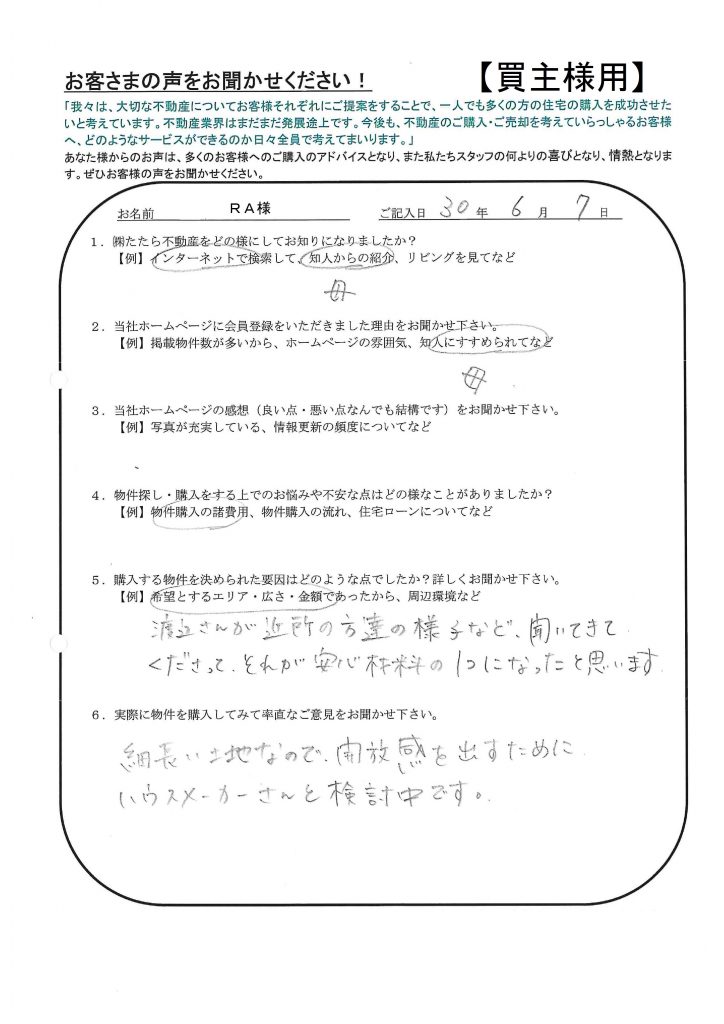 お客さまの声をお聞かせください！
【買主様用】
「我々は、大切な不動産についてお客様それぞれにご提案をすることで、一人でも多くの方の住宅の購入を成功させた
いと考えています。不動産業界はまだまだ発展途上です。今後も、不動産のご購入・ご売却を考えていらっしゃるお客様
へ、どのようなサービスができるのか日々全員で考えてまいります。」
あなた様からのお声は、多くのお客様へのご購入のアドバイスとなり、また私たちスタッフの何よりの喜びとなり、情熱となりま
す。ぜひお客様の声をお聞かせください。
お名前 ＲＡ様 ご記入日 30 年 6 月 7 日
１．㈱たたら不動産をどの様にしてお知りになりましたか？
【例】インターネットで検索して、知人からの紹介、リビングを見てなど
母
２．当社ホームページに会員登録をいただきました理由をお聞かせ下さい。
【例】掲載物件数が多いから、ホームページの雰囲気、知人にすすめられてなど
母
３．当社ホームページの感想（良い点・悪い点なんでも結構です）をお聞かせ下さい。
【例】写真が充実している、情報更新の頻度についてなど
４．物件探し・購入をする上でのお悩みや不安な点はどの様なことがありましたか？
【例】物件購入の諸費用、物件購入の流れ、住宅ローンについてなど
５．購入する物件を決められた要因はどのような点でしたか？詳しくお聞かせ下さい。
【例】希望とするエリア・広さ・金額であったから、周辺環境など
渡辺さんが近所の方達の様子など、聞いてきて
くださって、それが安心材料の1つになったと思います
６．実際に物件を購入してみて率直なご意見をお聞かせ下さい。
細長い土地なので、開放感を出すために
ハウスメーカーさんと検討中です。